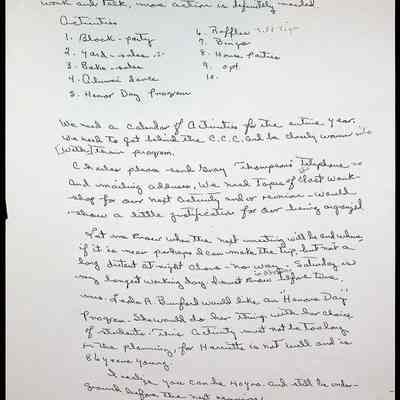 work and talk, more action is definitely needed.
Activities
1. Block-party
2. Yard-sales
3. Bake-sales
4. Alumni dance
5. Honor Day Program
6. Raffles
7. Bingo
8. House Parties
9. opt.
10.
We need a calendar of Activities for the entire year.
We need to get behind the C.C.C. and be closely woven into
(with) their program.
Charles please send Gray Thompson's Telephone no
and mailing address. We need tapes of last work-
shop for our next activity and or reunion - would
show a little justification for our being
Let me know when the next meeting will be and where,
if it is near perhaps I can make the trip, but not a
long distant at night alone - no way. Saturday is
my longest working day. I must know in advance before time.
Mrs. Leola A. Bumford would like an "Honors Day"
Program. She would do her thing with her choice
of students. This activity must not be too long
in the planning, for Henrietta is not well and is
86 years young.
I realize you can be 40 yrs. and still be under-
ground before the next reunion,